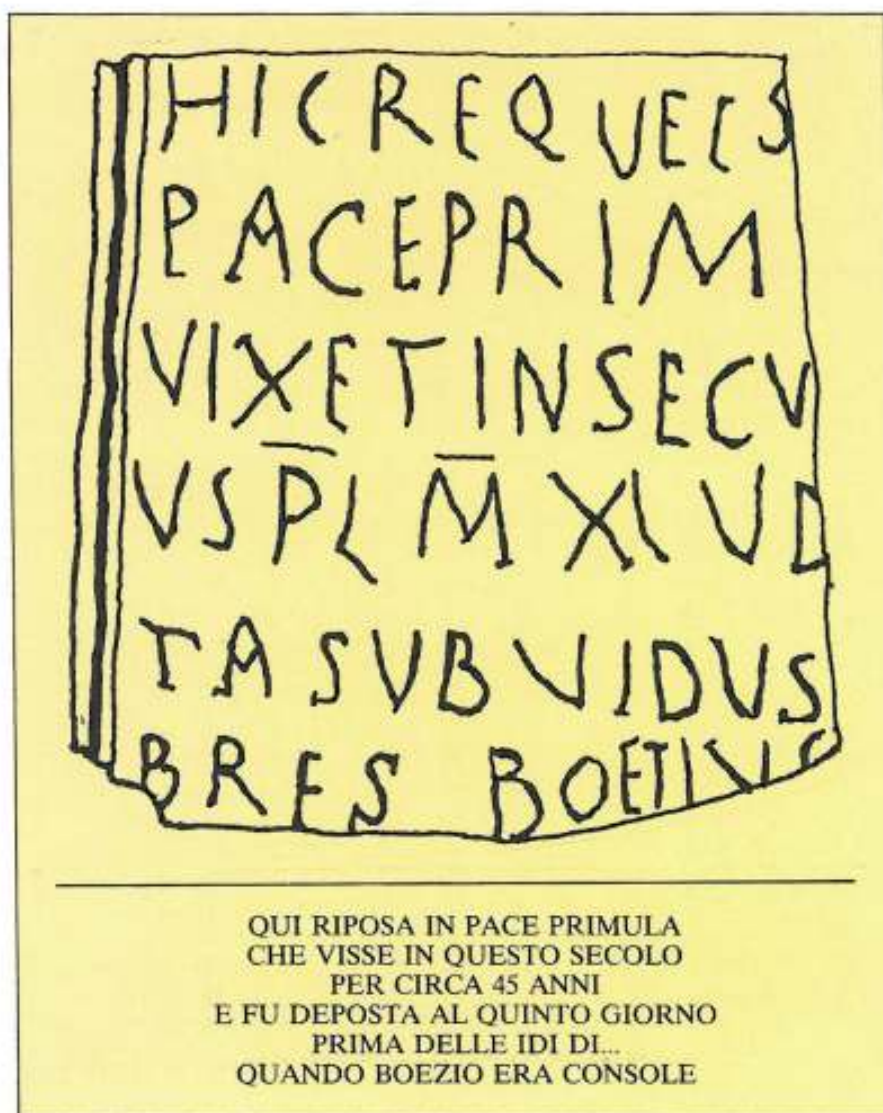 HICREQUECS
PACEPRIM
VIXETINSECV
VSPLMXLVD
TASVBVIDVS
BRES BOETIVC
QUI RIPOSA IN PACE PRIMULA
CHE VISSE IN QUESTO SECOLO
PER CIRCA 45 ANNI
E FU DEPOSTA AL QUINTO GIORNO
PRIMA DELLE IDI DI...
QUANDO BOEZIO ERA CONSOLE